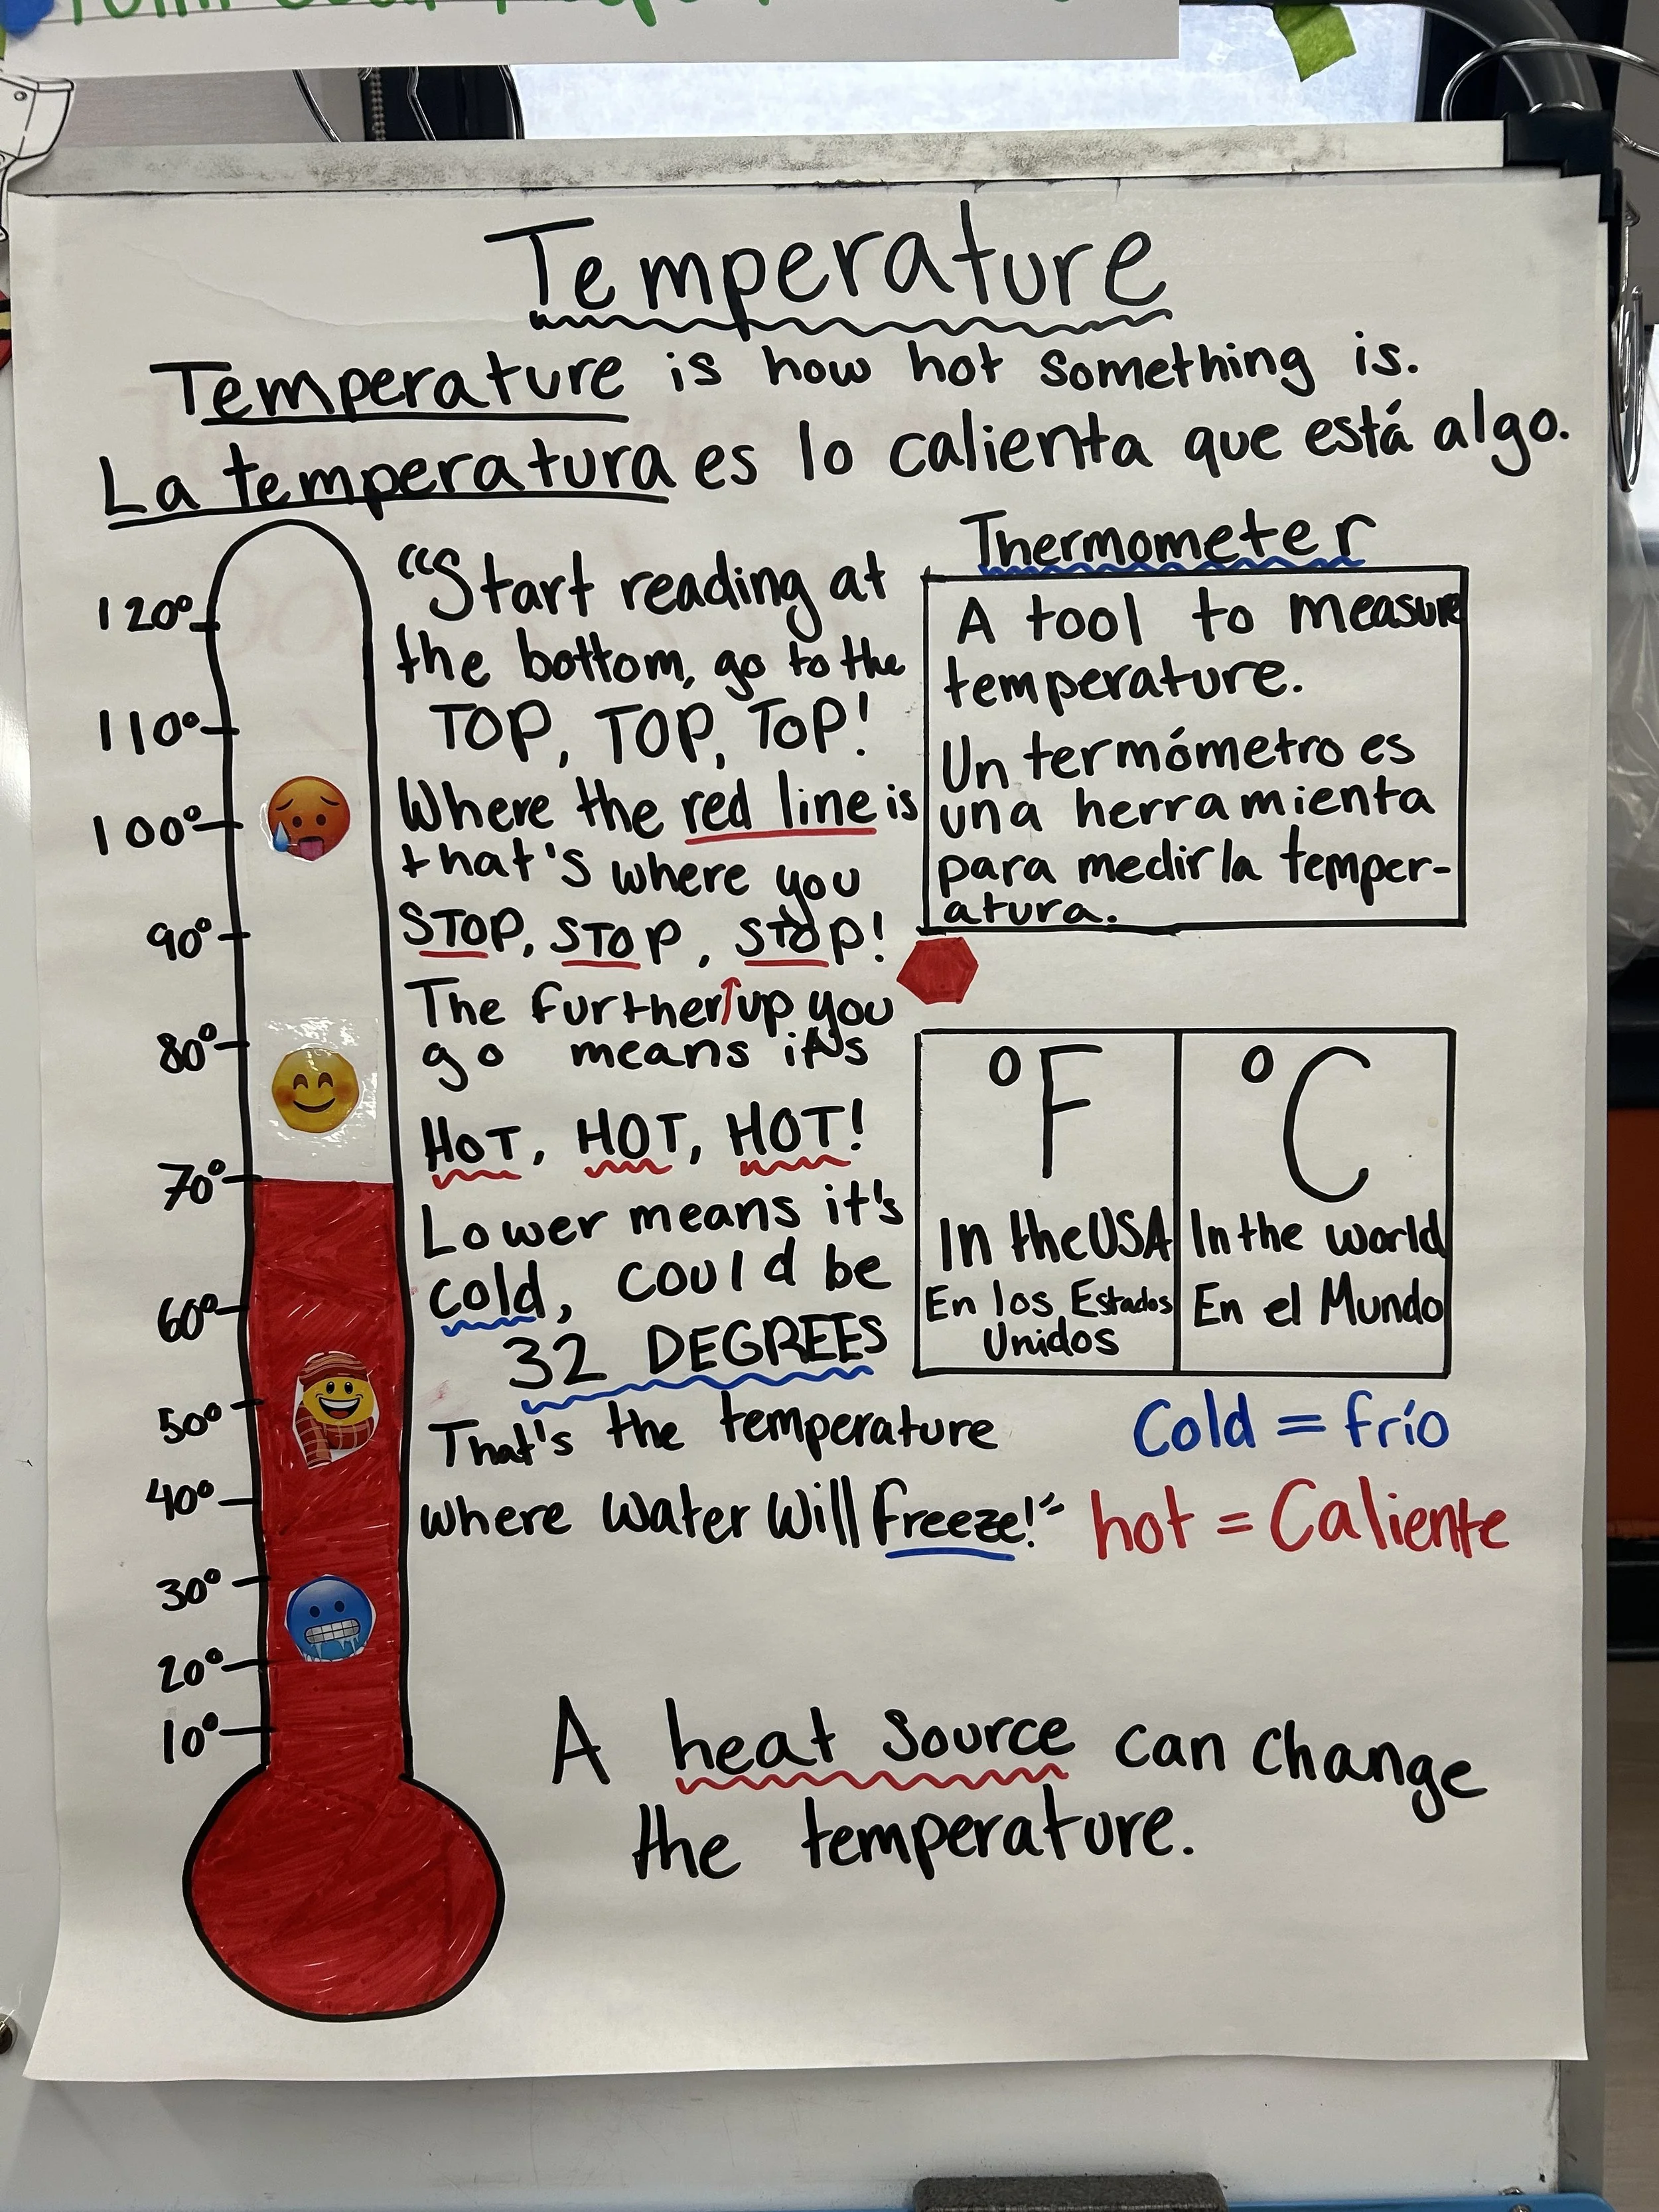 Temperature
Temperature is how hot something is.
La temperatura es lo calienta que está algo.
120°
110°
100°
90°
80°
70°
60°
50°
40°
30°
20°
10°
"Start reading at
the bottom, go to the
TOP, TOP, TOP!
Where the red line is
that's where you
STOP, STOP, STOP!
The further↑up you
go means it's
HOT, HOT, HOT!
Lower means it's
cold, could be
32 DEGREES
That's the temperature
where water will freeze!"
Thermometer
A tool to measure
temperature.
Un termómetro es
una herramienta
para medir la temper-
atura.
°F
In the USA
En los Estados
Unidos
°C
In the world
En el Mundo
Cold = frío
hot = Caliente
A heat source can change
the temperature.